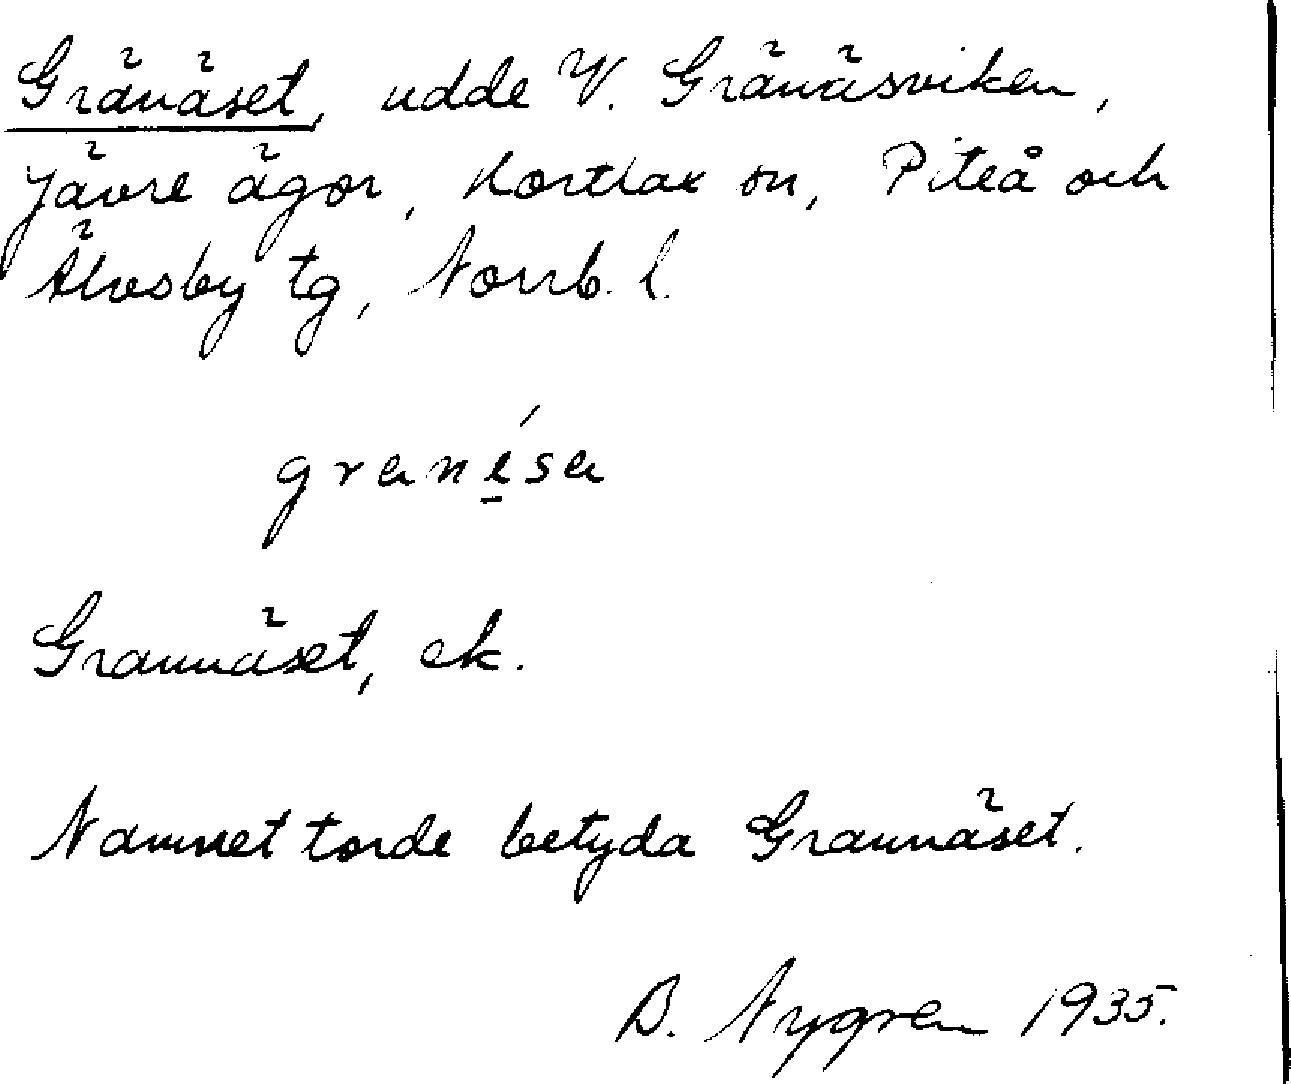 Gränäset, udde V. Gränäsviken,
Jävre ägor, Hortlax sn, Piteå och
Älvsby tg, Norrb. l.
grenésa
Grannäset, ek.
Namnet torde betyda Grannäset.
B. Nygren 1935.